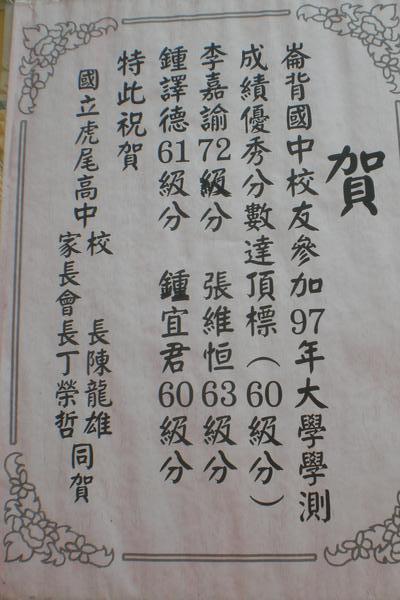 賀
崙背國中校友參加97年大學學測
成績優秀分數達頂標（60級分）
李嘉諭72級分 張維恒63級分
鍾譯德61級分 鍾宜君60級分
特此祝賀
國立虎尾高中校 長陳龍雄
家長會長丁榮哲
同賀